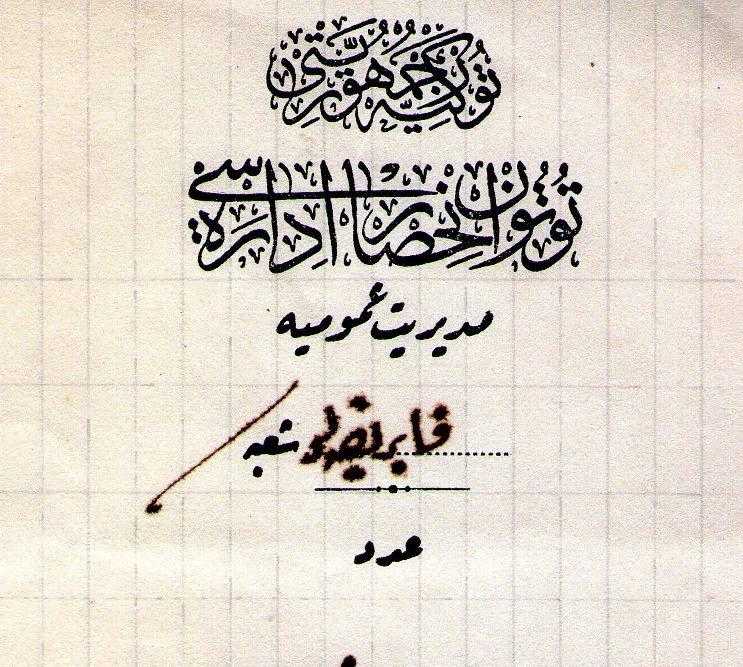 توركيه جمهوريتى
توتون انحصارى اداره سى
مديريت عموميه
فابريقه لر شعبه
عدد